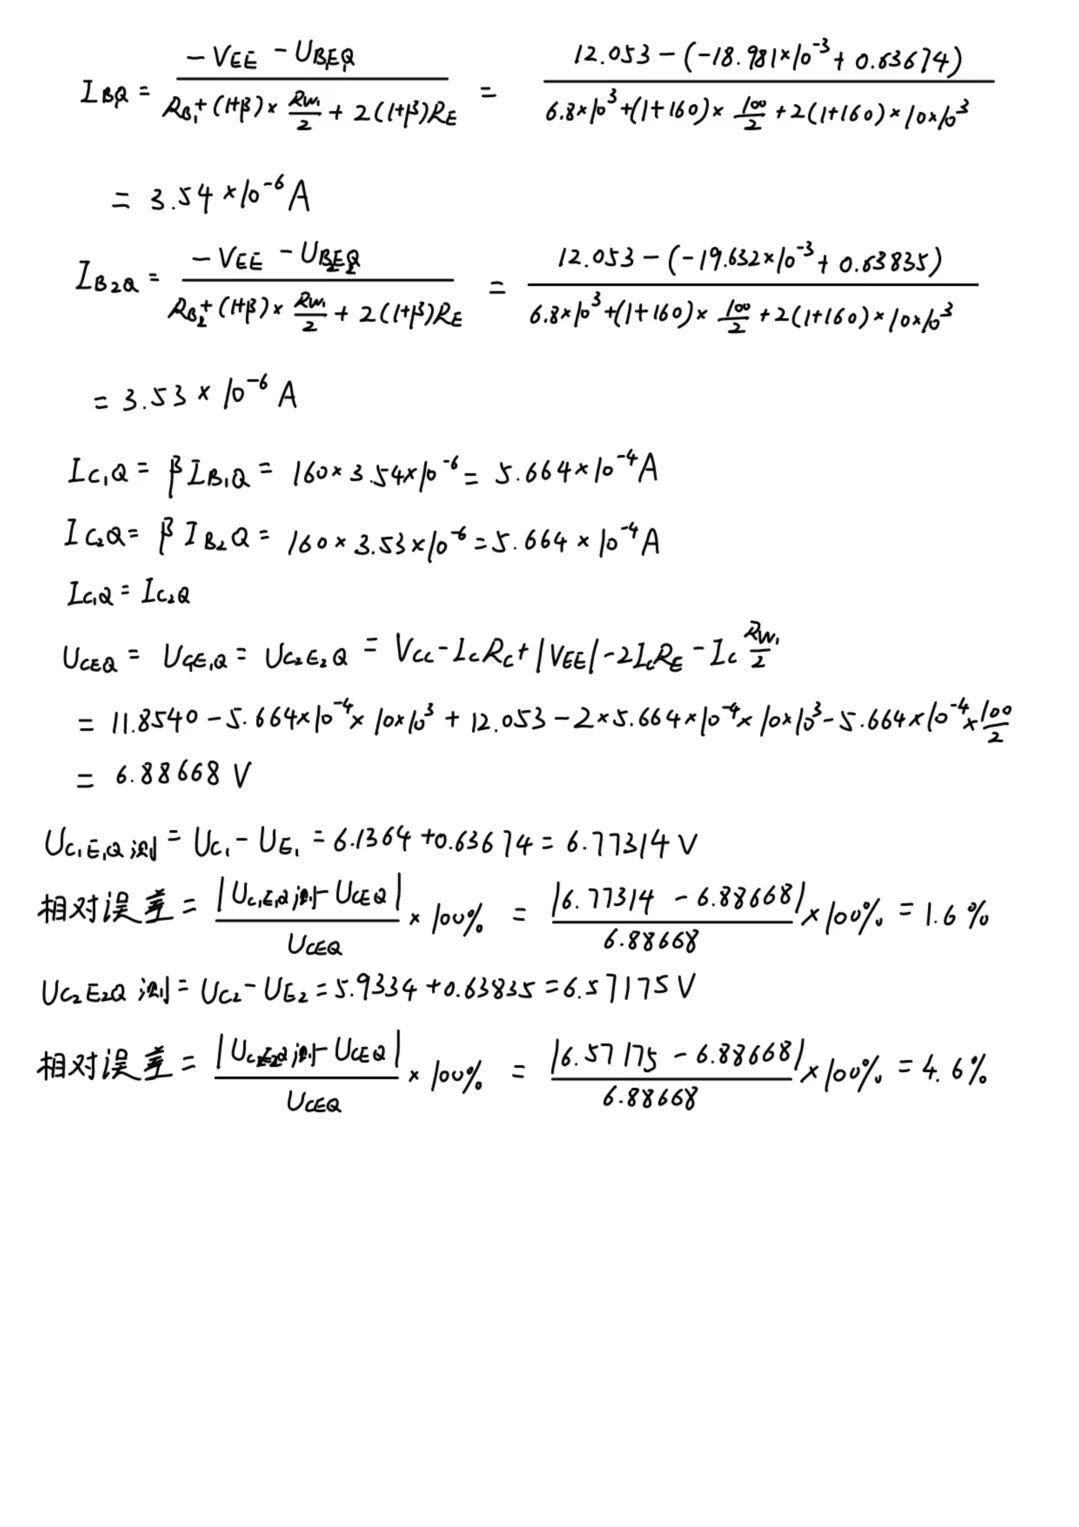 I_{BQ} = \frac{-V_{EE} - U_{BE_1Q}}{R_{B_1} + (1+β) × \frac{R_{W_1}}{2} + 2(1+β)R_E} = \frac{12.053 - (-18.981×10^{-3} + 0.63674)}{6.8×10^3 + (1+160) × \frac{100}{2} + 2(1+160)×10×10^3}
= 3.54 ×10^{-6} A
I_{B2Q} = \frac{-V_{EE} - U_{BE_2Q}}{R_{B_2} + (1+β) × \frac{R_{W_1}}{2} + 2(1+β)R_E} = \frac{12.053 - (-19.632×10^{-3} + 0.63835)}{6.8×10^3 + (1+160) × \frac{100}{2} + 2(1+160)×10×10^3}
= 3.53 × 10^{-6} A
I_{C_1Q} = β I_{B_1Q} = 160×3.54×10^{-6} = 5.664×10^{-4} A
I_{C_2Q} = β I_{B_2Q} = 160×3.53×10^{-6} = 5.664 × 10^{-4} A
I_{C_1Q} = I_{C_2Q}
U_{CEQ} = U_{C_1E_1Q} = U_{C_2E_2Q} = V_{CC} - I_C R_C + |V_{EE}| - 2I_C R_E - I_C \frac{R_{W_1}}{2}
= 11.8540 - 5.664×10^{-4}×10×10^3 + 12.053 - 2×5.664×10^{-4}×10×10^3 - 5.664×10^{-4}×\frac{100}{2}
= 6.88668 V
U_{C_1E_1Q测} = U_{C_1} - U_{E_1} = 6.1364 + 0.63674 = 6.77314 V
相对误差 = \frac{|U_{C_1E_1Q测} - U_{CEQ}|}{U_{CEQ}} × 100% = \frac{|6.77314 - 6.88668|}{6.88668} × 100% = 1.6 %
U_{C_2E_2Q测} = U_{C2} - U_{E2} = 5.9334 + 0.63835 = 6.57175 V
相对误差 = \frac{|U_{C_2E_2Q测} - U_{CEQ}|}{U_{CEQ}} × 100% = \frac{|6.57175 - 6.88668|}{6.88668} × 100% = 4.6%